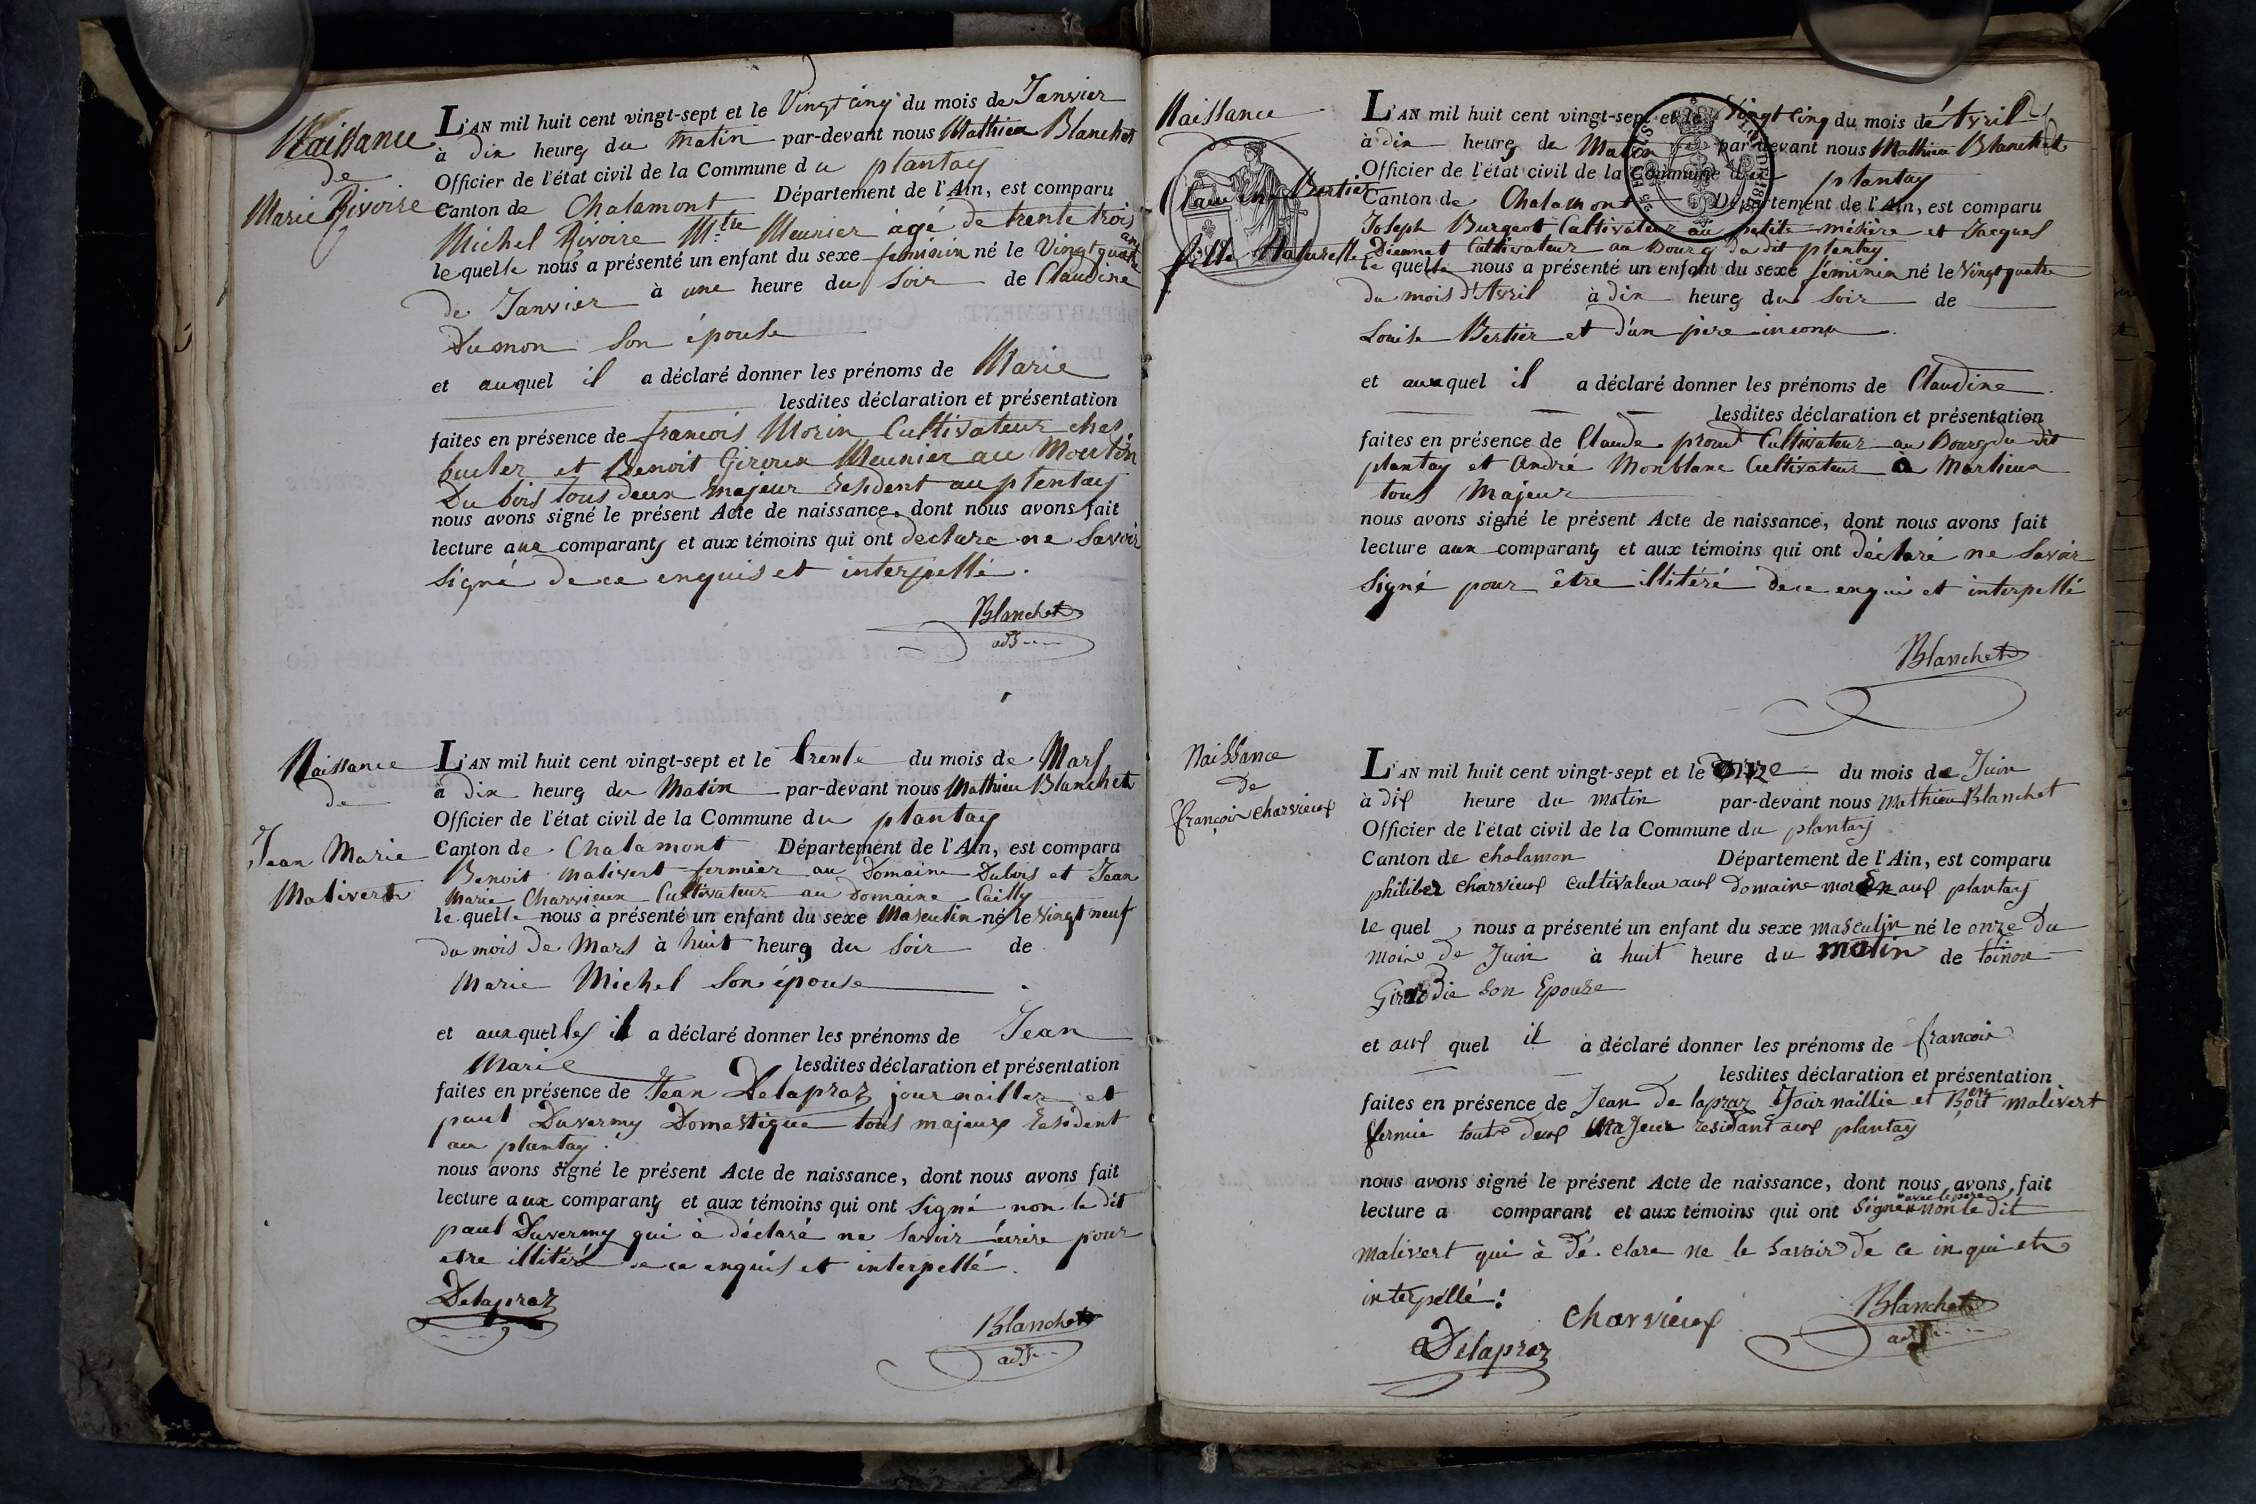 Naissance
de
Marie Rivoire
L'AN mil huit cent vingt-sept et le Vingt cinq du mois de Janvier
à dix heures du matin par-devant nous Mathieu Blanchet
Officier de l'état civil de la Commune du plantay
Canton de Chalamont Département de l'Ain, est comparu
Michel Rivoire M.tre Meunier agé de trente trois ans
le quelle nous a présenté un enfant du sexe feminin né le Vingt quatre
de Janvier à une heure du Soir de Claudine
Dumon Son épouse
et auquel il a déclaré donner les prénoms de Marie
lesdites déclaration et présentation
faites en présence de francois Morin Cultivateur ches
buclet et Benoit Giroux Meunier au Moulin
Du bois tous deux majeur resident au plentay
nous avons signé le présent Acte de naissance, dont nous avons fait
lecture aux comparants et aux témoins qui ont declare ne Savoir
signé de ce enquis et interpellé.
Blanchet
adj
Naissance
de
Jean Marie
Malivert
L'AN mil huit cent vingt-sept et le trente du mois de Mars
à dix heures du Matin par-devant nous Mathieu Blanchet
Officier de l'état civil de la Commune du plantay
Canton de Chalamont Département de l'Ain, est comparu
Benoit Malivert fermier au Domaine Dubois et Jean
Marie Charvieux Cultivateur au Domaine Cailly
le quelle nous a présenté un enfant du sexe Masculin né le vingt neuf
du mois de Mars à huit heures du Soir de
Marie Michel Son épouse
et aux quelles il a déclaré donner les prénoms de Jean
Marie lesdites déclaration et présentation
faites en présence de Jean Delapraz journaillier et
paul Duvermy Domestique tous majeurs resident
au plantay.
nous avons signé le présent Acte de naissance, dont nous avons fait
lecture aux comparants et aux témoins qui ont Signé non le dit
paul Duvermy qui à déclaré ne savoir écrire pour
etre illitéré de ce enquis et interpellé.
Delapraz
Blanchet
adj
Naissance
de
Claudine Bertier
fille Naturelle
L'AN mil huit cent vingt-sept et le Vingt cinq du mois de Avril
à dix heures du Maten par-devant nous Mathieu Blanchet
Officier de l'état civil de la Commune du plantay
Canton de Chalamont Département de l'Ain, est comparu
Joseph Burgeot Cultivateur au petit mésire et Jacques
Diennet Cultivateur au Bourg du dit plentay
le quelle nous a présenté un enfant du sexe féminin né le Vingt quatre
du mois d'Avril à dix heures du Soir de
Louise Bertier et d'un père inconu.
et aux quel il a déclaré donner les prénoms de Claudine
lesdites déclaration et présentation
faites en présence de Claude proud Cultivateur au Bourg du dit
plantay et André Monblanc Cultivateur à Marlieux
tous Majeur
nous avons signé le présent Acte de naissance, dont nous avons fait
lecture aux comparants et aux témoins qui ont déclaré ne Savoir
Signé pour être illitéré de ce enquis et interpellé
Blanchet
Naissance
de
françois charvieux
L'AN mil huit cent vingt-sept et le onze du mois de Juin
à dix heure du matin par-devant nous Mathieu Blanchet
Officier de l'état civil de la Commune du plantay
Canton de cholamon Département de l'Ain, est comparu
philiber charvieux cultivateur aux Domaine aux plantay
le quel nous a présenté un enfant du sexe masculin né le onze Du
mois de Juin à huit heure du matin de toinou
Girodie Son Epouse
et aux quel il a déclaré donner les prénoms de francois
lesdites déclaration et présentation
faites en présence de Jean De lapraz Journaillie et Benoit malivert
fermie toutes deux Majeur residant aux plantay
nous avons signé le présent Acte de naissance, dont nous avons fait
lecture a comparant et aux témoins qui ont Signer avec le père non le dit
malivert qui à dé clare ne le Savoir De ce inqui et
interpellé:
charvieux
Blanchet
adj
Delapraz